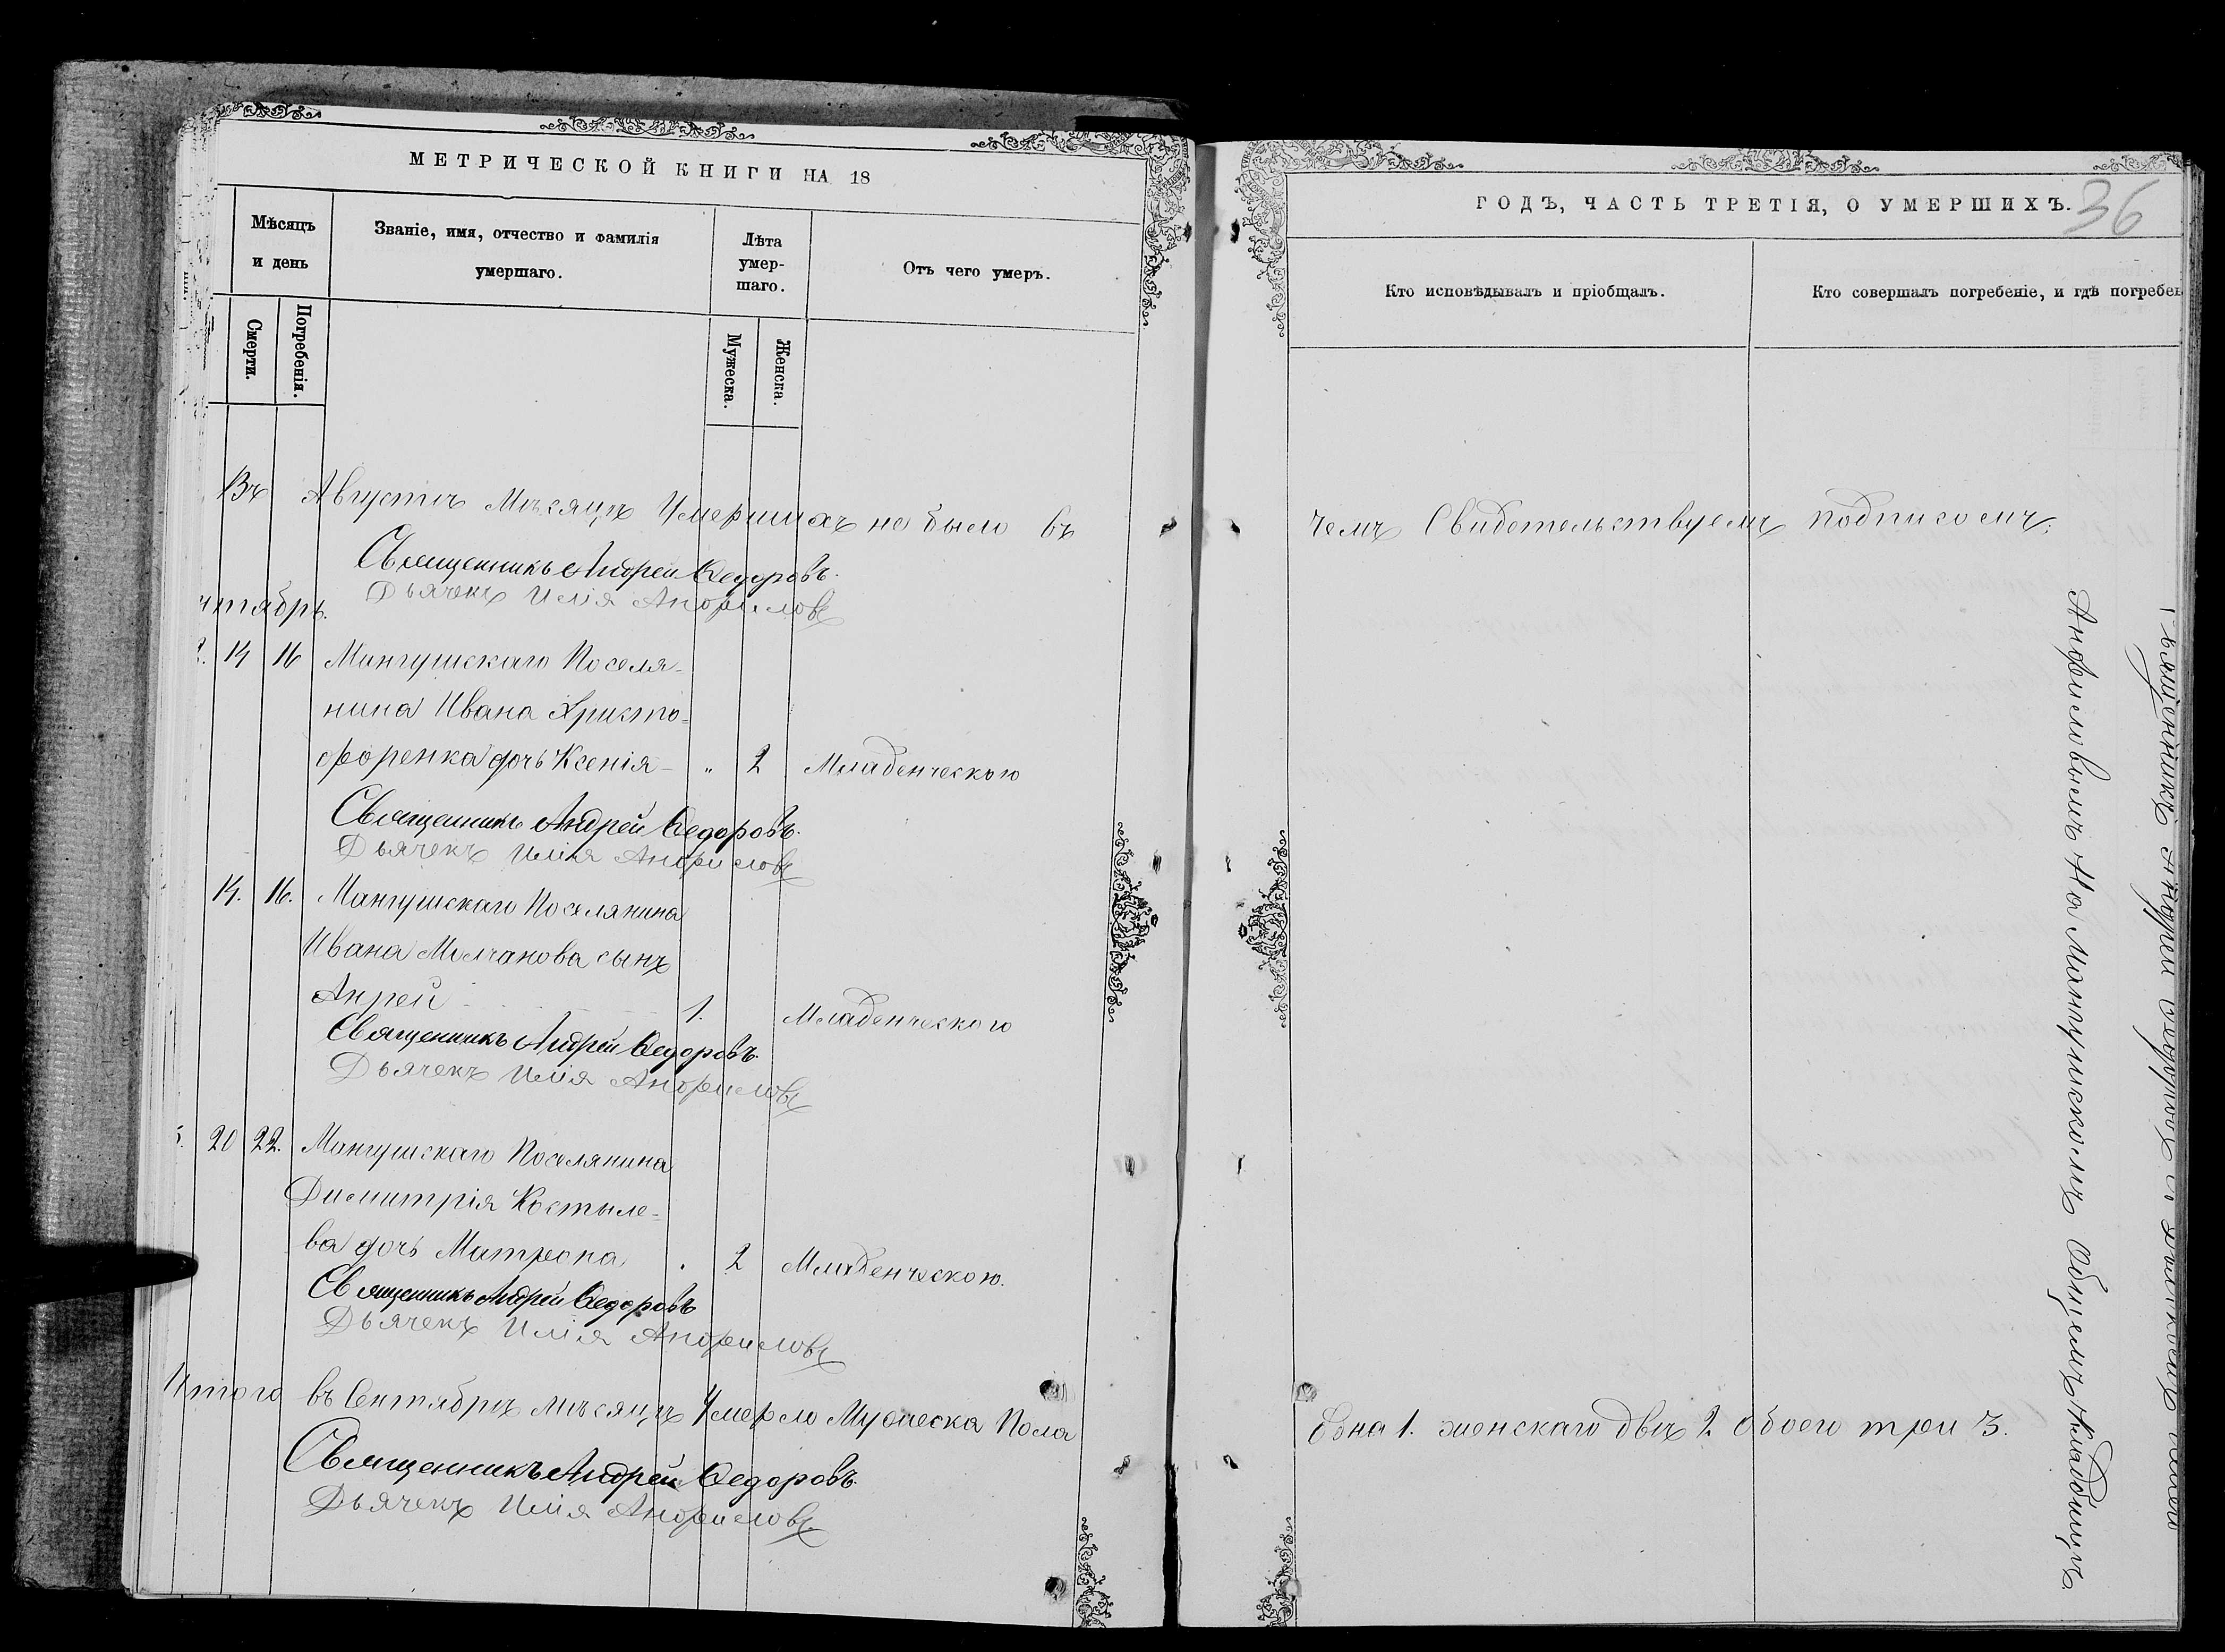 МЕТРИЧЕСКОЙ КНИГИ НА 18
Мѣсяцъ и день
Званіе, имя, отчество и фамилія умершаго.
Лѣта умер-шаго.
Отъ чего умеръ.
Смерти.
Погребенія.
Мужеска.
Женска.
Въ Августѣ мѣсяцѣ Умершихъ не было въ
Священникъ Андрей Ѳедоровъ.
Дьячекъ Илія Анфиловъ
нтябрь.
14 16 Мангушскаго Поселя-
нина Ивана Христо-
форенка дочь Ксенія - „ 2 Младенческою
Священникъ Андрей Ѳедоровъ.
Дьячекъ Илія Анфиловъ
14. 16. Мангушскаго Поселянина
Ивана Молчанова сынъ
Анрей 1. Младенческого
Священникъ Андрей Ѳедоровъ.
Дьячекъ Илія Анфиловъ
20 22. Мангушскаго Поселянина
Димитрія Костыле-
ва дочь Матрона . 2 Младенческою.
Священникъ Андрей Ѳедоровъ
Дьячекъ Илія Анфиловъ
Итого въ Сентябрѣ мѣсяцѣ Умерло Мужеска Пола
Священникъ Андрей Ѳедоровъ.
Дьячекъ Илія Анфиловъ
ГОДЪ, ЧАСТЬ ТРЕТІЯ, О УМЕРШИХЪ.
36
Кто исповѣдывалъ и пріобщалъ.
Кто совершалъ погребеніе, и гдѣ погребен
чемъ Свидетельствуемъ подписомъ:
Священникъ Андрей Ѳедоровъ съ Дьячкомъ Иліей
Анфиловымъ На Мангушскомъ Общемъ Кладбищѣ.
Една 1. женскаго двѣ 2 Обоего три 3.